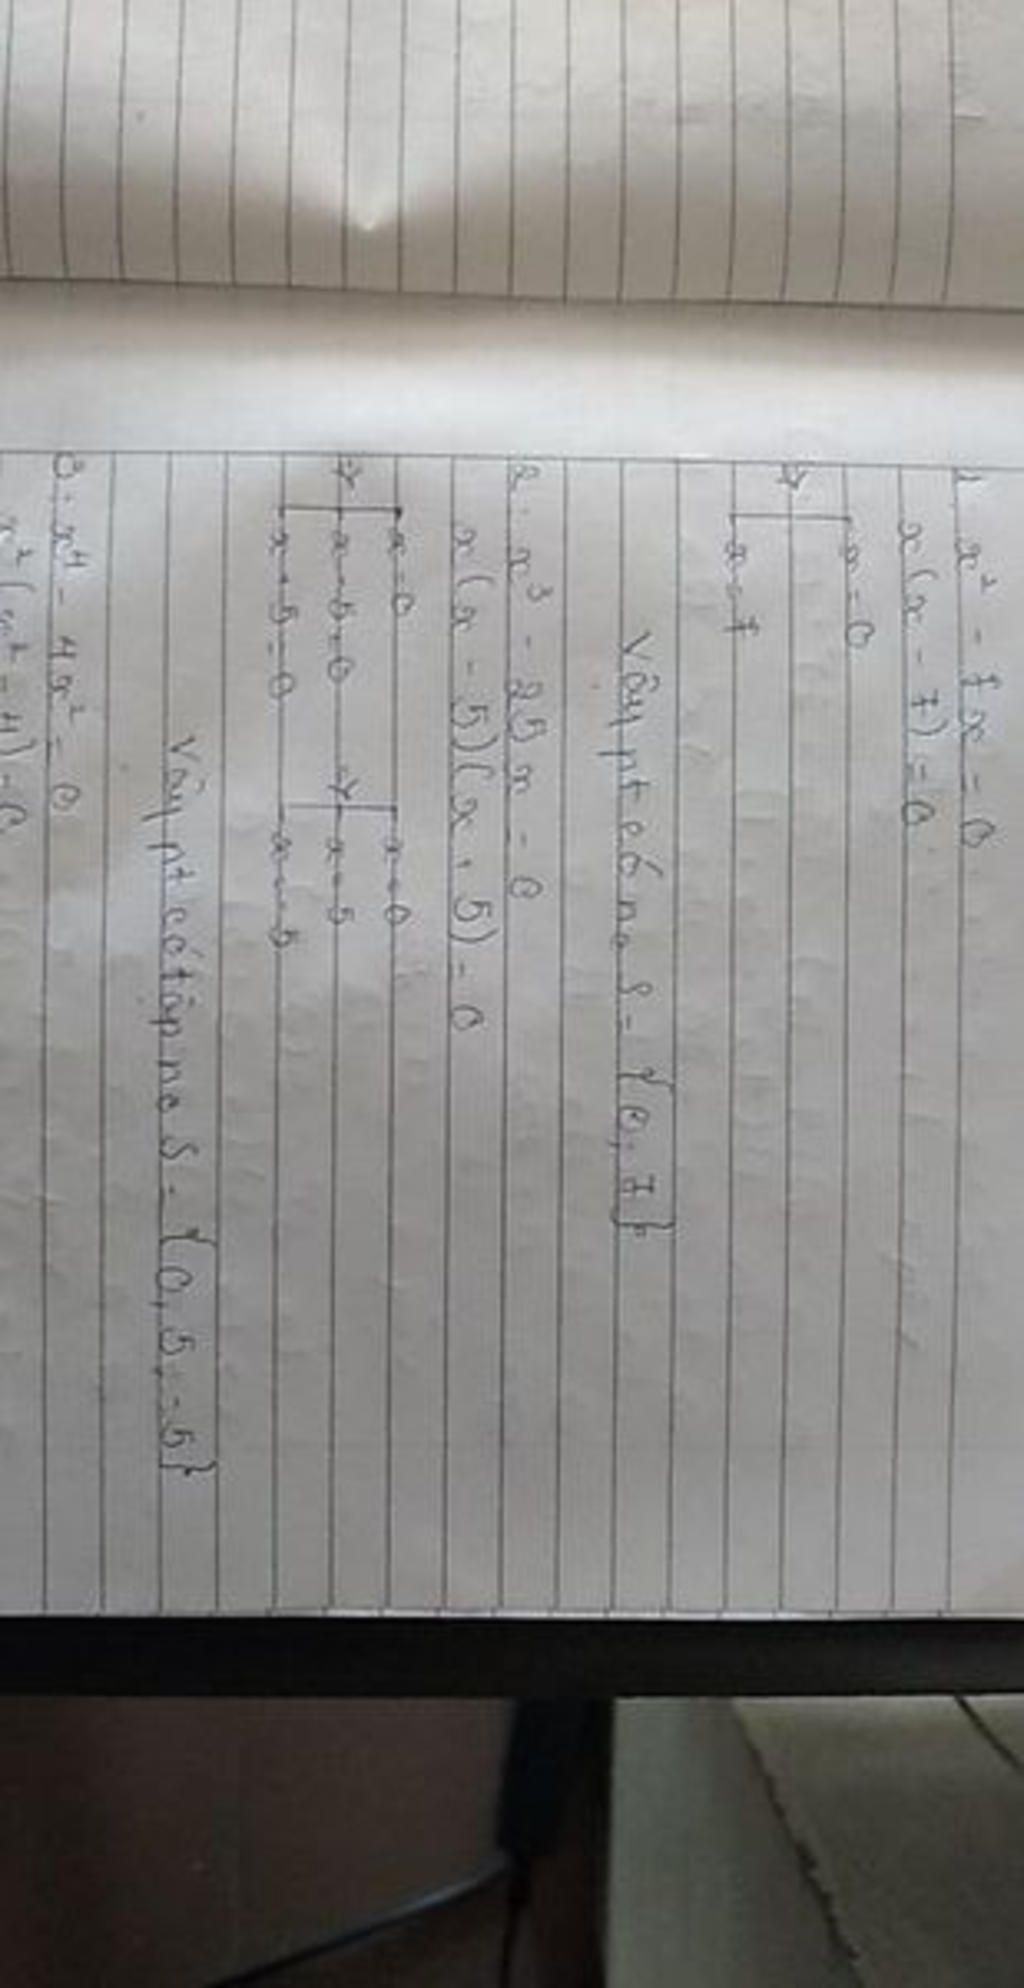 1. x² - 7x = 0
x(x - 7) = 0
→ x = 0
x = 7
Vậy pt có no S = {0, 7}
2. x³ - 25x = 0
x(x - 5)(x + 5) = 0
→ x = 0 → x = 0
x - 5 = 0 x = 5
x + 5 = 0 x = -5
Vậy pt có tập no S = {0, 5, -5}
3. x⁴ - 4x² = 0
x²(x² - 4) = 0